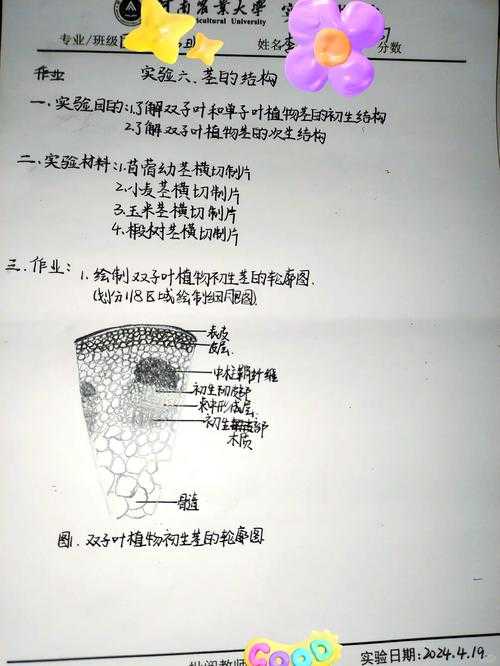 河南农业大学 实
Agricultural University
专业/班级
姓名
分数
作业 实验六、茎的结构
一、实验目的:1.了解双子叶和单子叶植物茎的初生结构
2.了解双子叶植物茎的次生结构
二、实验材料:1.苜蓿幼茎横切制片
2.小麦茎横切制片
3.玉米茎横切制片
4.椴树茎横切制片
三.作业:1.绘制双子叶植物初生茎的轮廓图.
(划分1/8区域绘制细胞图)
表皮
皮层
中柱鞘纤维
初生韧皮部
束中形成层
初生木质部
髓
图1.双子叶植物初生茎的轮廓图
GOOD
批阅教师
实验日期:2024.4.19.